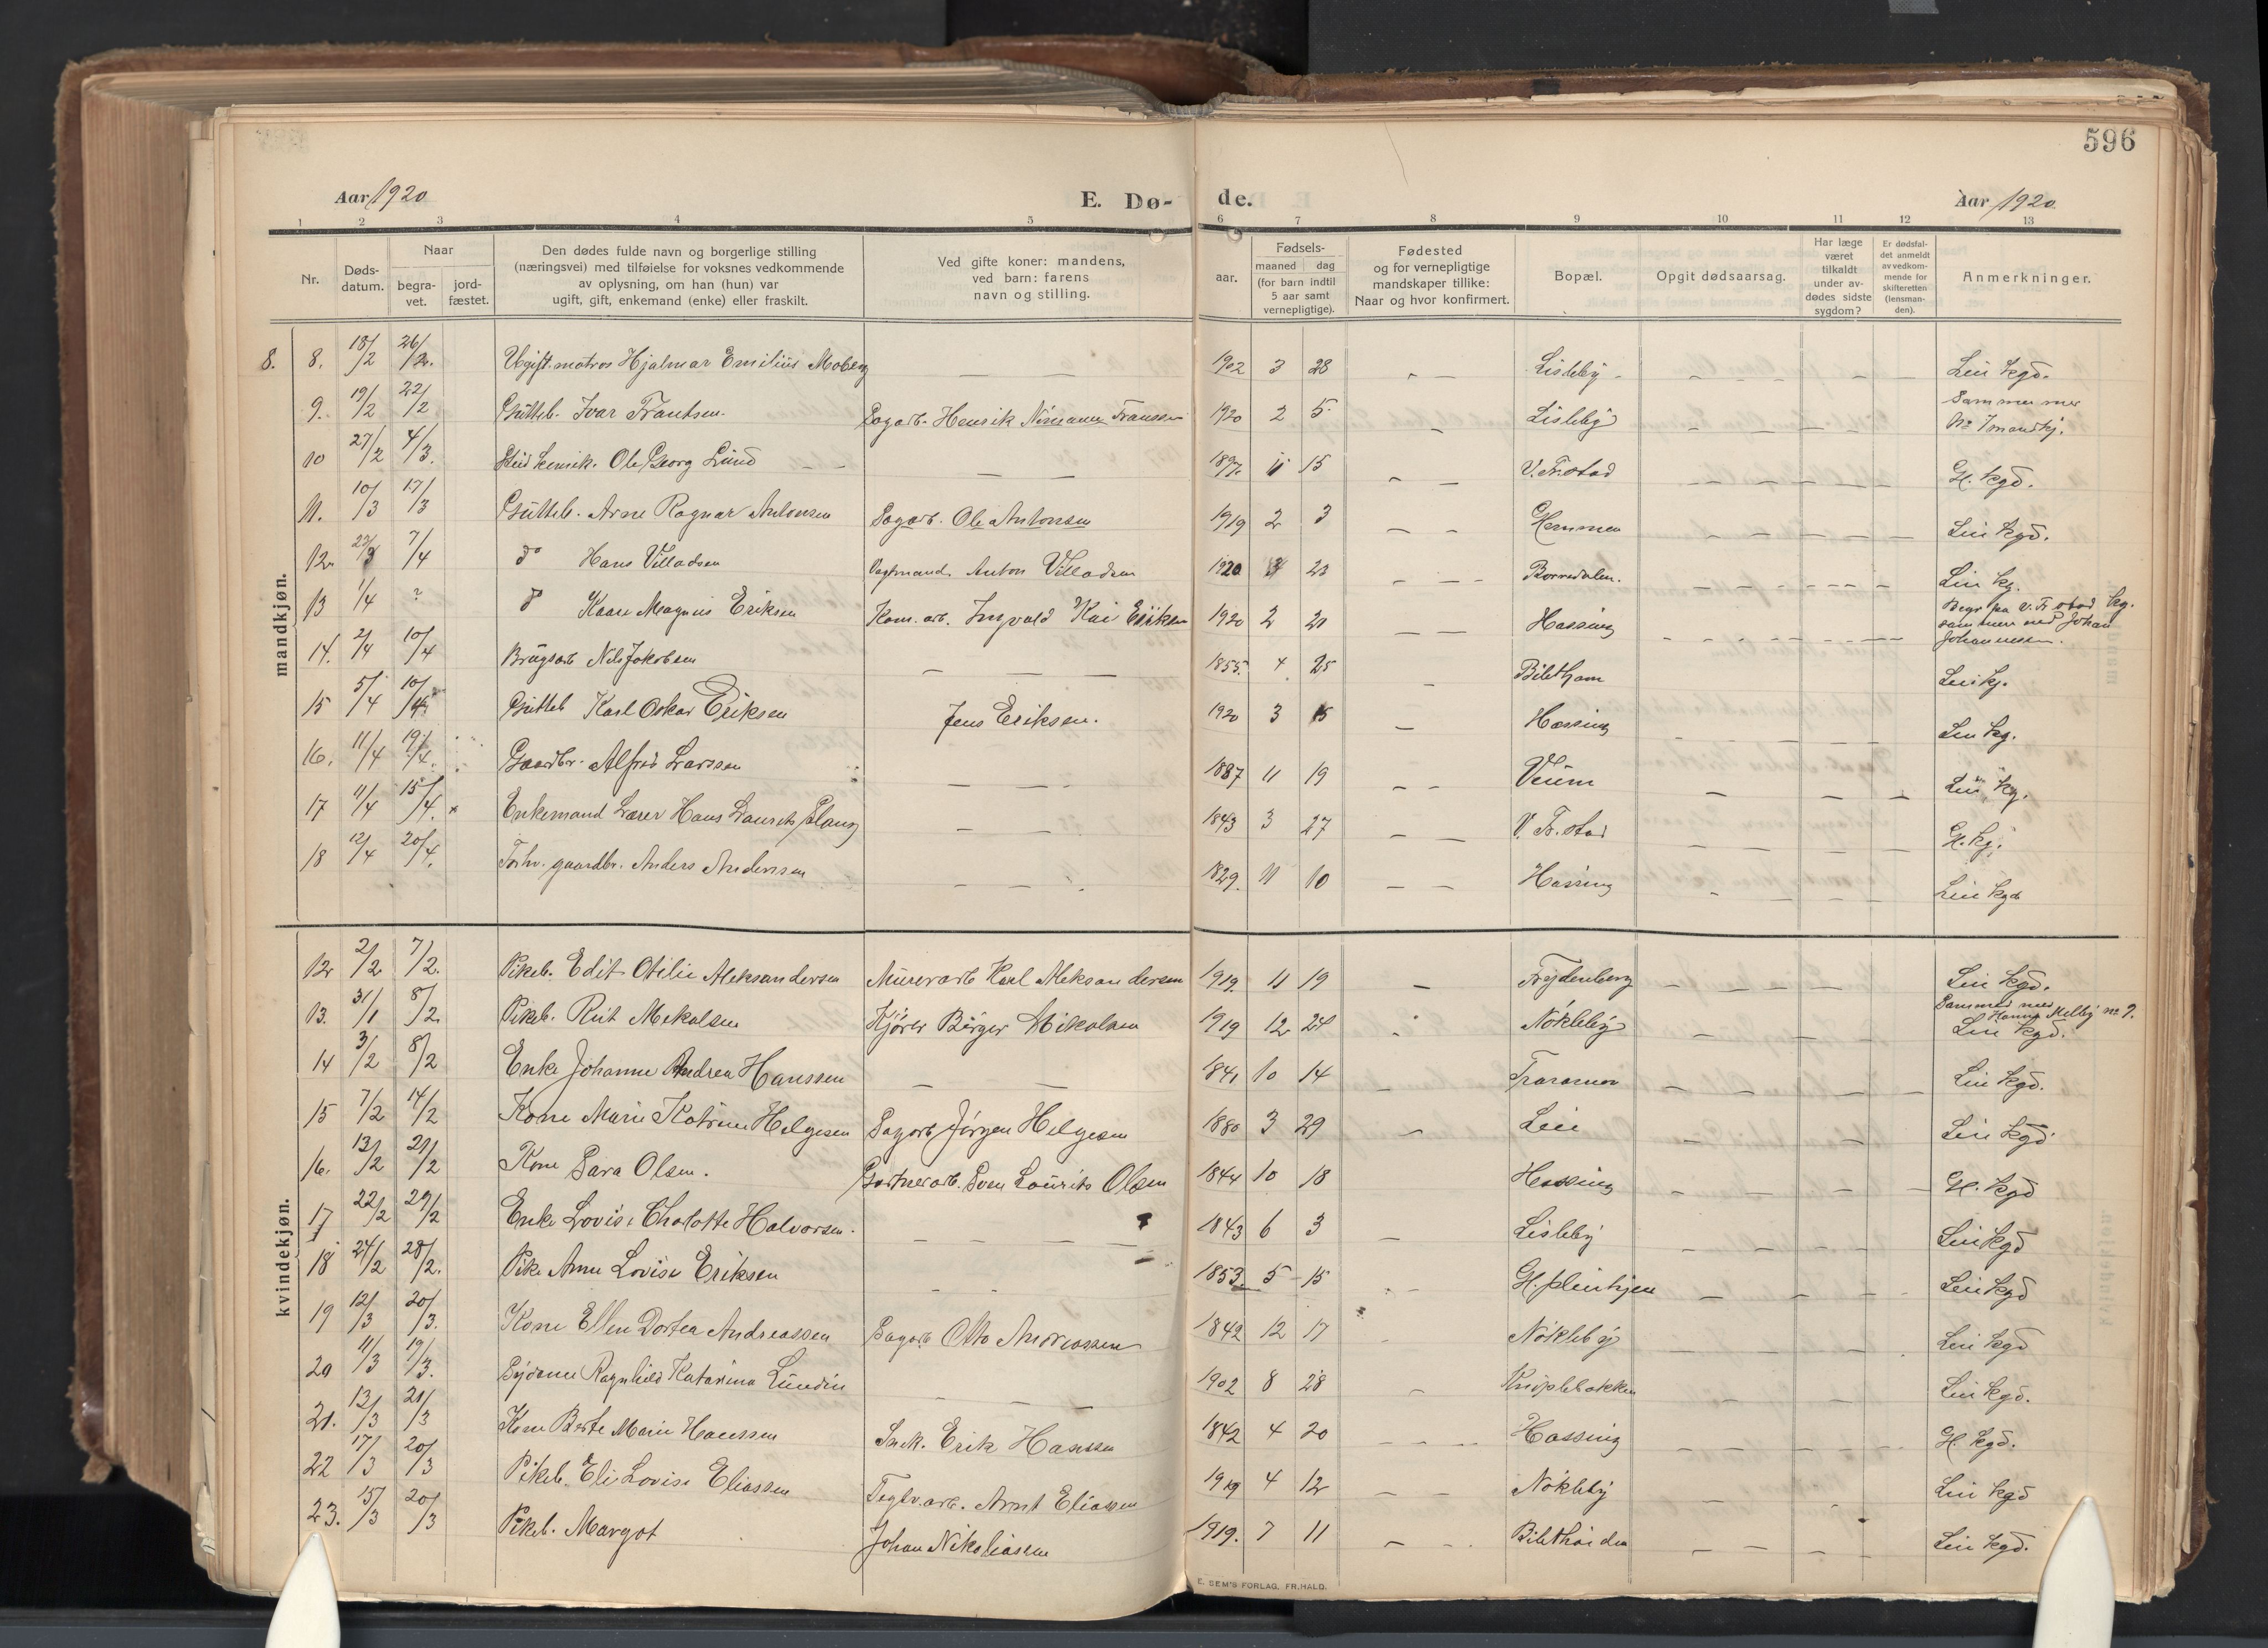 596
Aar 1920 E. Dø- de. Aar 1920
1 2 3 4 5 6 7 8 9 10 11 12 13
Nr. Døds-datum. Naar begra-vet. jord-fæstet. Den dødes fulde navn og borgerlige stilling (næringsvei) med tilføielse for voksnes vedkommende av oplysning, om han (hun) var ugift, gift, enkemand (enke) eller fraskilt. Ved gifte koner: mandens, ved barn: farens navn og stilling. aar. Fødsels- maaned dag (for barn indtil 5 aar samt vernepligtige). Fødested og for vernepligtige mandskaper tillike: Naar og hvor konfirmert. Bopæl. Opgit dødsaarsag. Har læge været tilkaldt under av-dødes sidste sygdom? Er dødsfal-det anmeldt av vedkom-mende for skifteretten (lensman-den). Anmerkninger.
mandkjøn.
8. 8. 18/2 26/2. Ugift. matros Hjalmar Emilius Moberg — — 1902 3 28 — — Lisleby — Lei kgd.
9. 19/2 22/2 Gutteb. Ivar Frantsen. Sagarb. Henrik Franssen 1920 2 5 — Lisleby — Sammen med No 7 mandkj.
10 27/2 4/3. Ole Georg Lund — — 15 — — V. Fr.stad — Gl. kgd.
11. 10/3 17/3 Gutteb. Arne Ragnar Antonsen Sagarb. Ole Antonsen 1919 2 3 — — Hammen — Lei kgd.
12. 7/4 do Hans Villadsen Vagtmand Anton Villadsen 1920 3 23 — — Borredalen. — Lei kg.
13 1/4 ? do Kaare Magnus Eriksen Kom. arb. Ingvald Kai Eriksen 1920 2 21 — — Hassing — Begr paa V. Fr.stad kg. sammen med Johan Johannessen.
14. 2/4 10/4 Brugsarb Nils Jakobsen — — 1855. 4 25 — Bilitham Lei kj.
15 5/4 10/4 Gutteb Karl Oskar Eriksen Jens Eriksen. 1920 3 15 — Hassing — Lei kg.
16. 11/4 19/4. Gaardbr. Alfred Larssen — — 1887 11 19 — — Veum — Lei kg.
17 11/4 15/4. x Enkemand Lærer Hans Laurits — — 1843 3 27 — — V. Fr. stad — Gl. kg.
18 12/4 20/4. Forhv. gaardbr. Anders Andersen — — 1829. 11 10 — — Hassing — Lei kgd
kvindekjøn.
12 2/2 7/2. Pikeb. Edit Otilie Aleksandersen Murerarb Karl Aleksandersen 1919. 11 19 — Frydenberg — Lei kgd.
13. 31/1 8/2 Pikeb. Rut Mekalsen Kjører Birger Mikalsen 1919 12 24 Nøkleby — Sammen med Hanna Melby no 9. Lei kgd.
14 3/2 8/2 Enke Johanne Andrea Hanssen — — 1841 10 14 — Traraneset — Lei kgd.
15 7/2 14/2 Kone Marie Katrine Helgesen Sagarb Jørgen Helgesen 1880 3 29 — Leie — Lei kgd.
16. 13/2 21/2 Kone Sara Olsen. Gartnerarb. Sven Laurits Olsen 1844 10 18 Hassing — Gl. kgd
17 22/2 29/2 Enke Lovise Charlotte Halvorsen. — — 1843 6 3 — Lisleby — Lei kgd
18 24/2 28/2. Pike Anne Lovise Eriksen — — 1853. 5 15 — Gl. pleiehjem — Lei kgd
19 12/3 20/3. Kone Ellen Dortea Andreassen Sagarb Otto Andreassen 1842 12 17 Nøkleby — Lei kgd
20 11/3 19/3. Sydame Ragnhild Katarina Lundin — — 1902 8 28 — Kniplebakken — Lei kgd.
21. 13/3 21/3 Kone Berte Marie Hanssen Snek. Erik Hanssen 1842 4 20 — — Hassing — Gl. kgd.
22 17/3 20/3 Pikeb. Eli Lovise Eliassen Teglv. arb. Arnt Eliassen 1919 4 12 — — Nøkleby — Lei kgd
23. 15/3 20/3 Pikeb. Margot Johan Nikoliassen 1919. 7 11 — — — Lei kgd.
E. SEM'S FORLAG, FR.HALD.